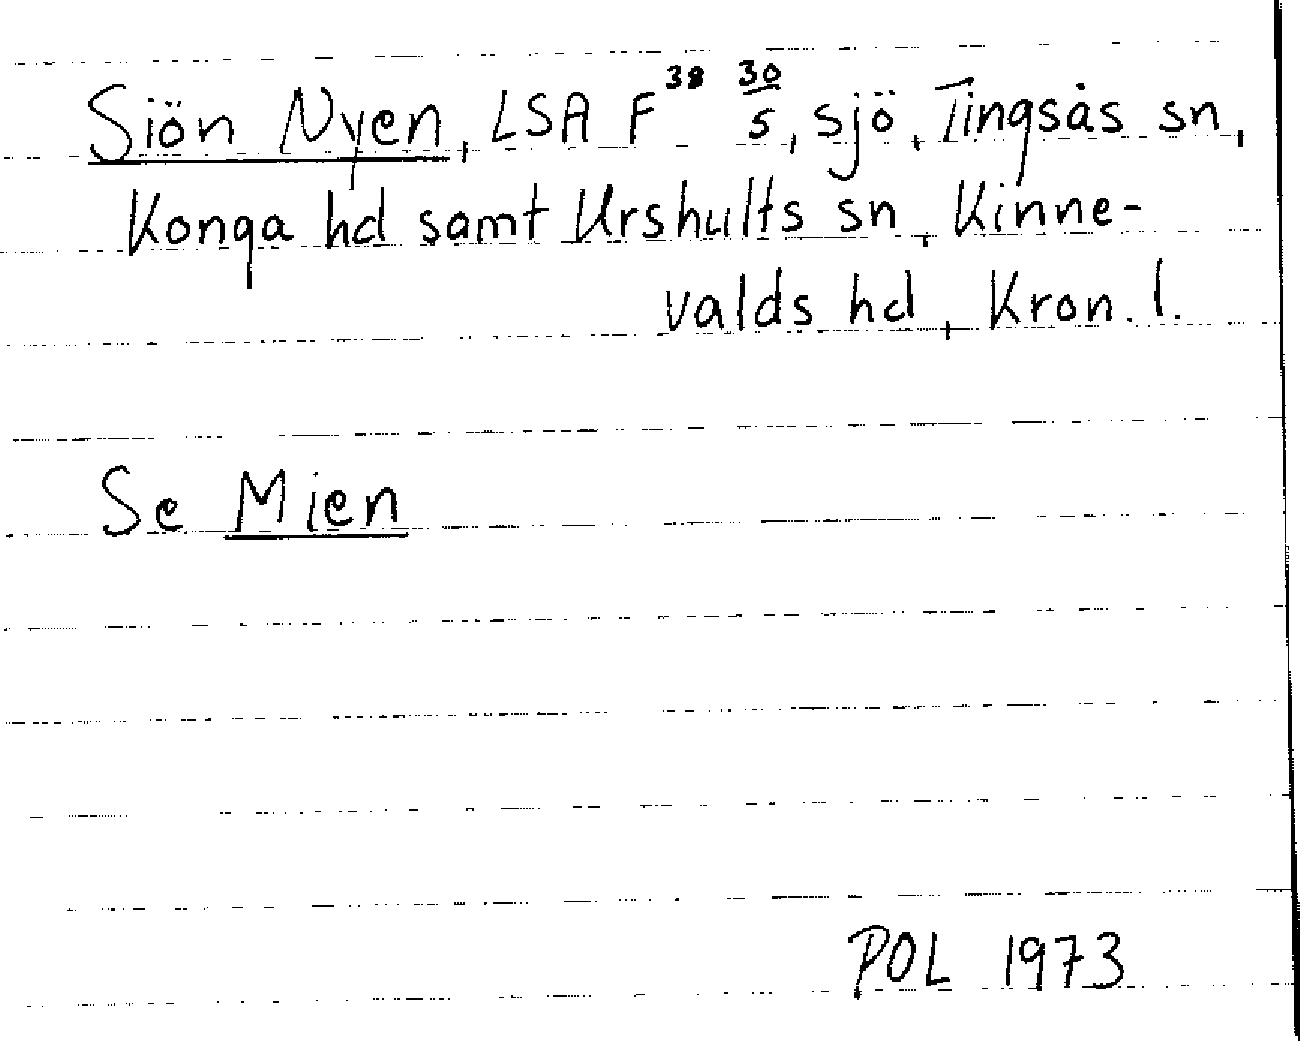 Siön Nyen, LSA F³⁸ 30/5, sjö, Tingsås sn,
Konga hd samt Urshults sn, Kinne-
valds hd, Kron. l.
Se Mien
POL 1973